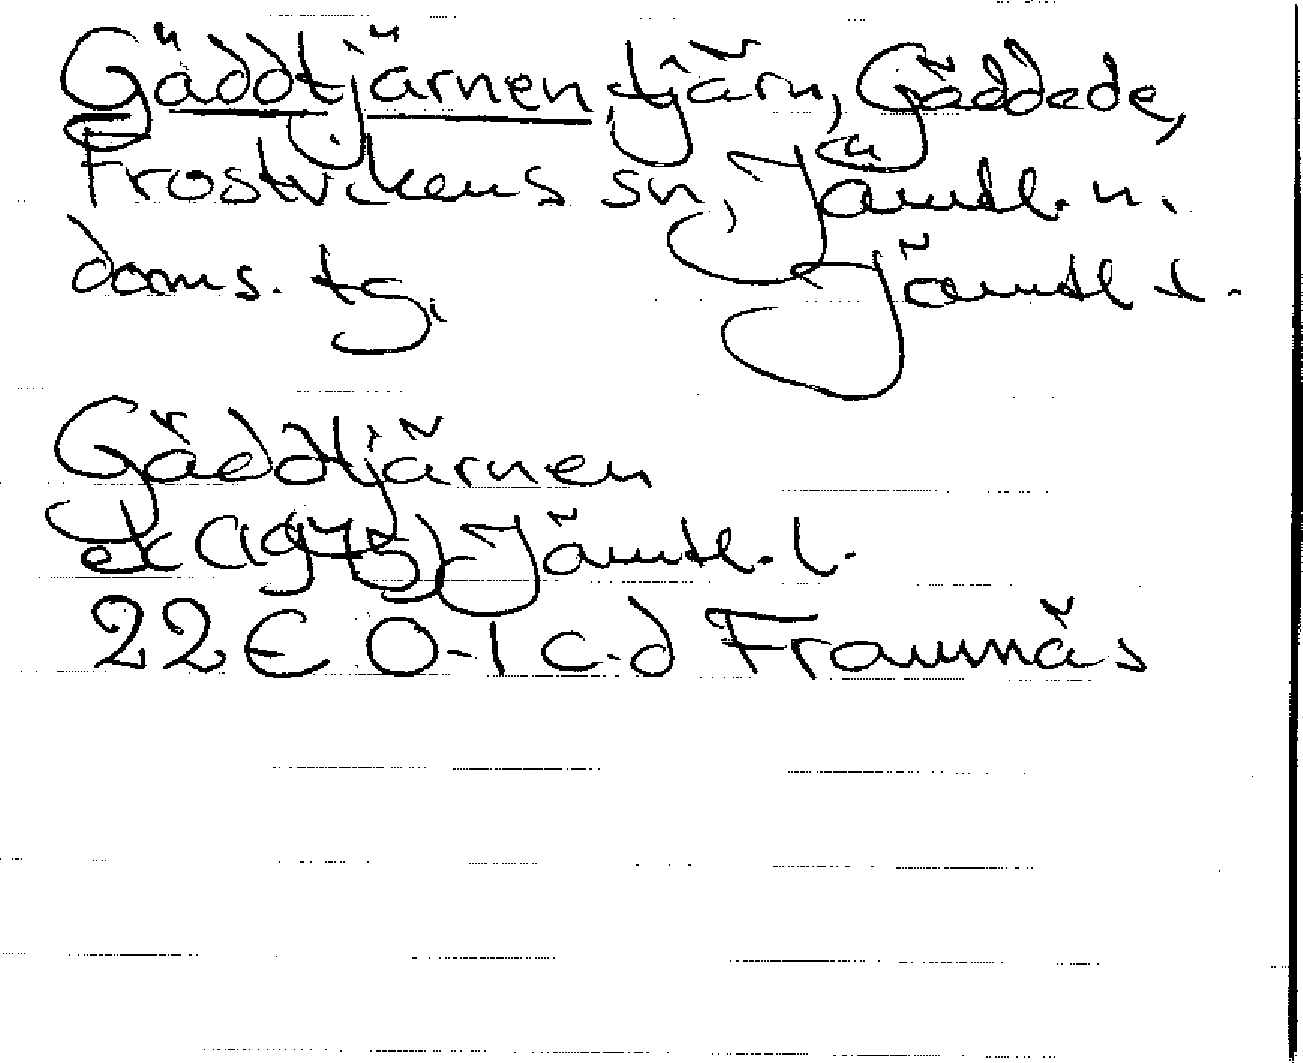 Gäddtjärnen, tjärn, Gäddede,
Frostvikens sn, Jämtl. n.
doms. tg, Jämtl l.
Gäddtjärnen
ek (1975) Jämtl. l.
22E 0-1 c-d Framnäs